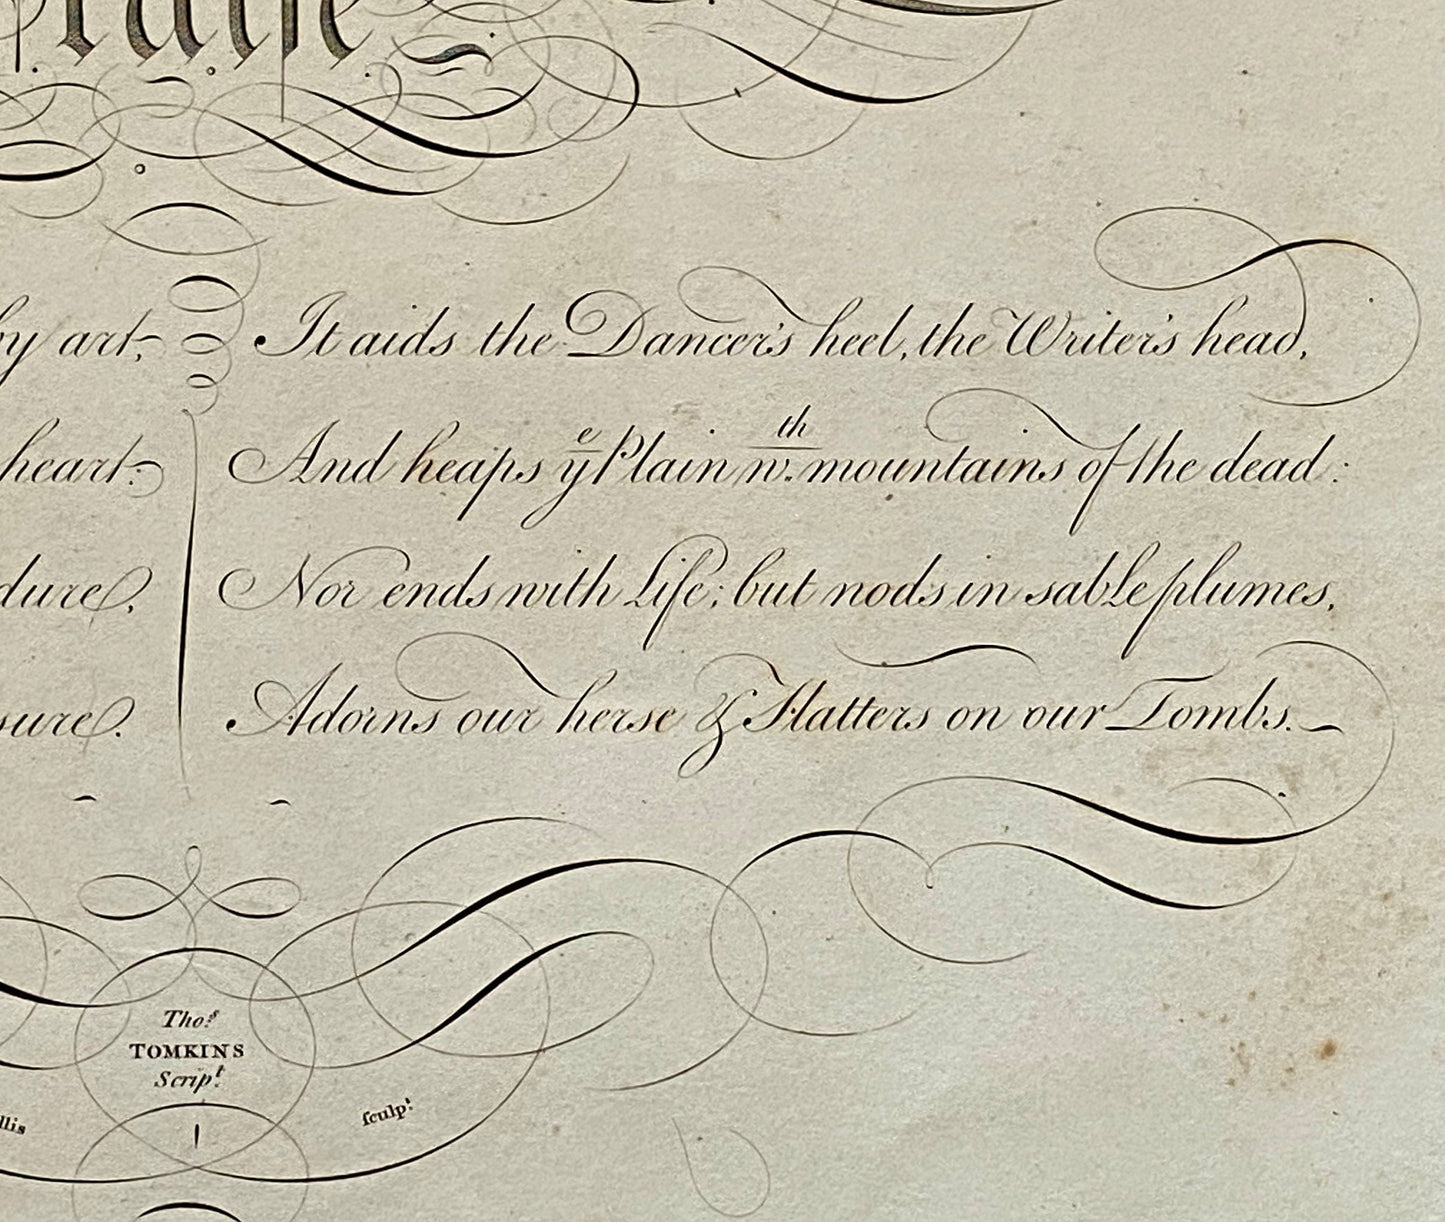 raise
by art,
It aids the Dancer's heel, the Writer's head,
heart:
And heaps yᵉ Plain wᵗʰ. mountains of the dead:
dure,
Nor ends with Life; but nods in sable plumes,
sure.
Adorns our herse & Flatters on our Tombs.
Thoˢ.
TOMKINS
Scripᵗ.
llis
ſculpᵗ.